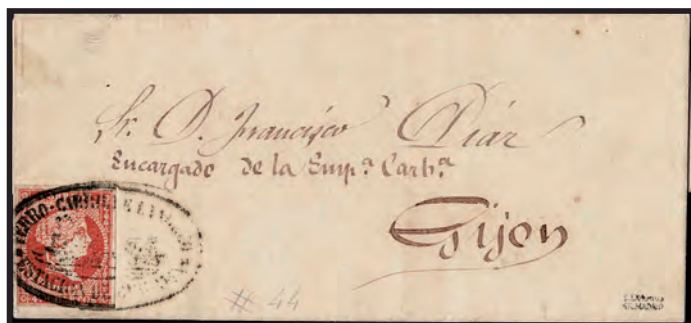 Sr. D. Francisco Diaz
Encargado de la Emp.ª Carb.ª
Gijon
# 44